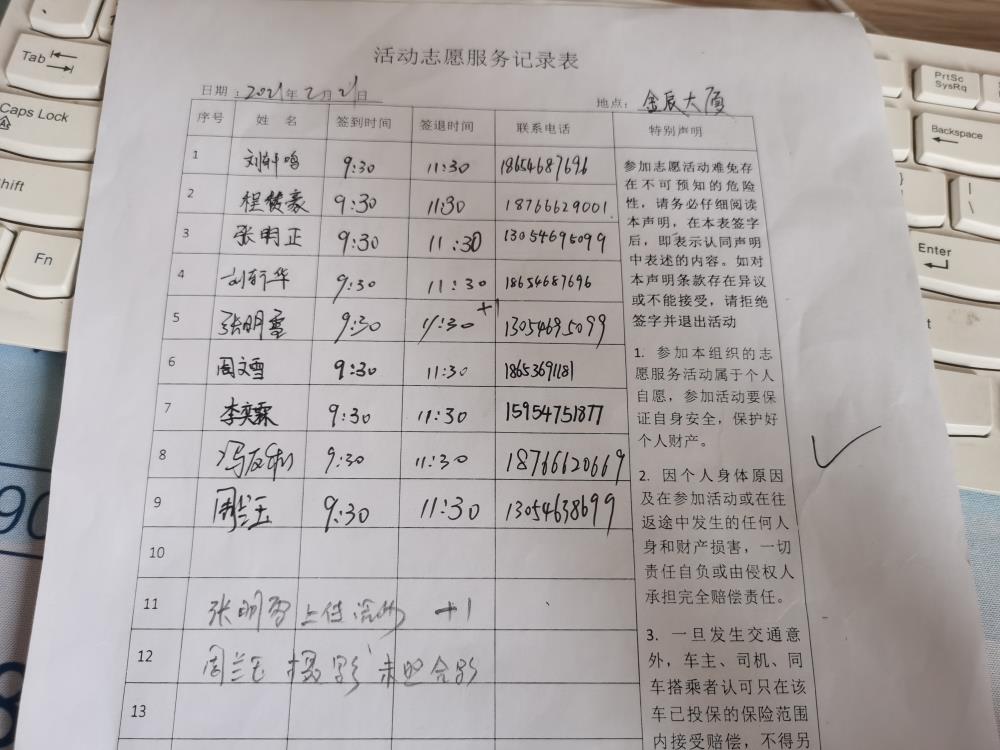 活动志愿服务记录表
日期：2021年2月21日
地点：金辰大厦
序号 姓 名 签到时间 签退时间 联系电话 特别声明
1 刘轩鸣 9:30 11:30 18654687696
2 程俊豪 9:30 11:30 18766629001
3 张明正 9:30 11:30 13054695099
4 刘新华 9:30 11:30 18654687696
5 张明雪 9:30 11:30 +1 13054695099
6 周文雪 9:30 11:30 18653691181
7 李奕霖 9:30 11:30 15954751877
8 9:30 11:30 18766620669
9 周兰玉 9:30 11:30 13054638699
10
11 张明雪上传 +1
12 周兰玉 摄影 未照合影
13
参加志愿活动难免存
在不可预知的危险
性，请务必仔细阅读
本声明，在本表签字
后，即表示认同声明
中表述的内容。如对
本声明条款存在异议
或不能接受，请拒绝
签字并退出活动
1. 参加本组织的志
愿服务活动属于个人
自愿，参加活动要保
证自身安全，保护好
个人财产。
2. 因个人身体原因
及在参加活动或在往
返途中发生的任何人
身和财产损害，一切
责任自负或由侵权人
承担完全赔偿责任。
3. 一旦发生交通意
外，车主、司机、同
车搭乘者认可只在该
车已投保的保险范围
内接受赔偿，不得另
Tab
Caps Lock
Shift
Fn
PrtSc
SysRq
Backspace
}
]
|
\
Enter
90
8